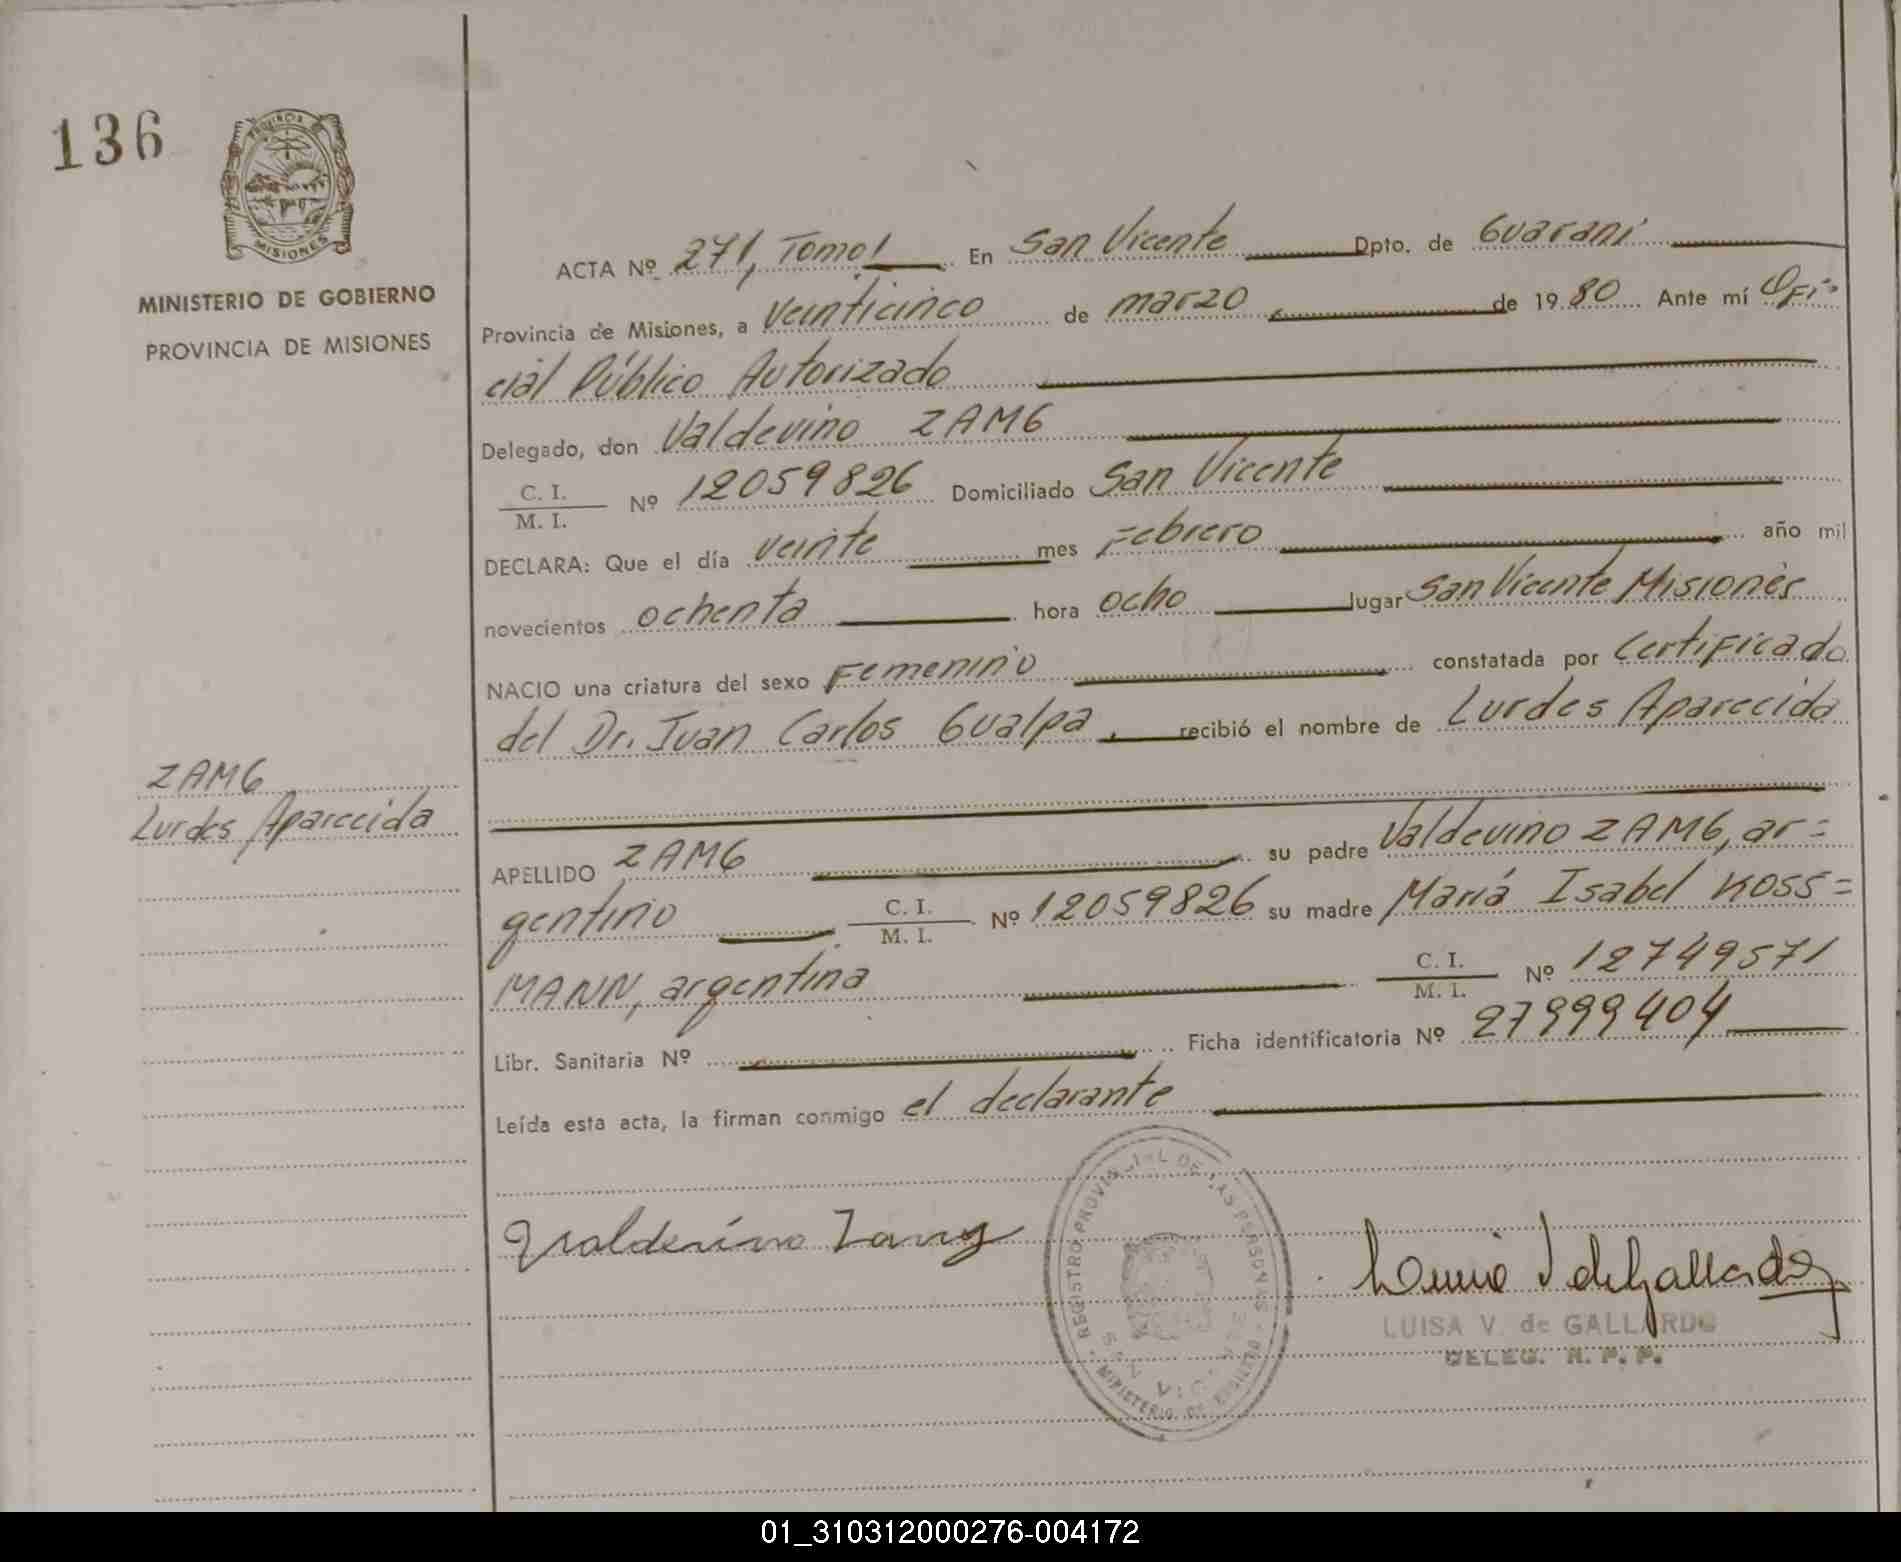 136
PROVINCIA DE
MISIONES
MINISTERIO DE GOBIERNO
PROVINCIA DE MISIONES
ACTA Nº 271, Tomo I En San Vicente Dpto. de Guaraní
Provincia de Misiones, a veinticinco de marzo de 1980 Ante mí Ofi=
cial Público Autorizado
Delegado, don Valdevino ZAMG
C. I.
M. I. Nº 12059826 Domiciliado San Vicente
DECLARA: Que el día veinte mes Febrero año mil
novecientos ochenta hora ocho lugar San Vicente Misiones
NACIO una criatura del sexo Femenino constatada por Certificado
del Dr. Juan Carlos Gualpa, recibió el nombre de Lurdes Aparecida
ZAMG
Lurdes Aparecida
APELLIDO ZAMG su padre Valdevino ZAMG, ar=
gentino C. I. M. I. Nº 12059826 su madre María Isabel KOSS=
MANN, argentina C. I. M. I. Nº 12749571
Libr. Sanitaria Nº Ficha identificatoria Nº 27999404
Leída esta acta, la firman conmigo el declarante
REGISTRO PROVINCIAL DE LAS PERSONAS
SAN VICENTE
MINISTERIO DE GOBIERNO
Valdevino Zamg
LUISA V. de GALLARDO
DELEG. R. P. P.
01_310312000276-004172